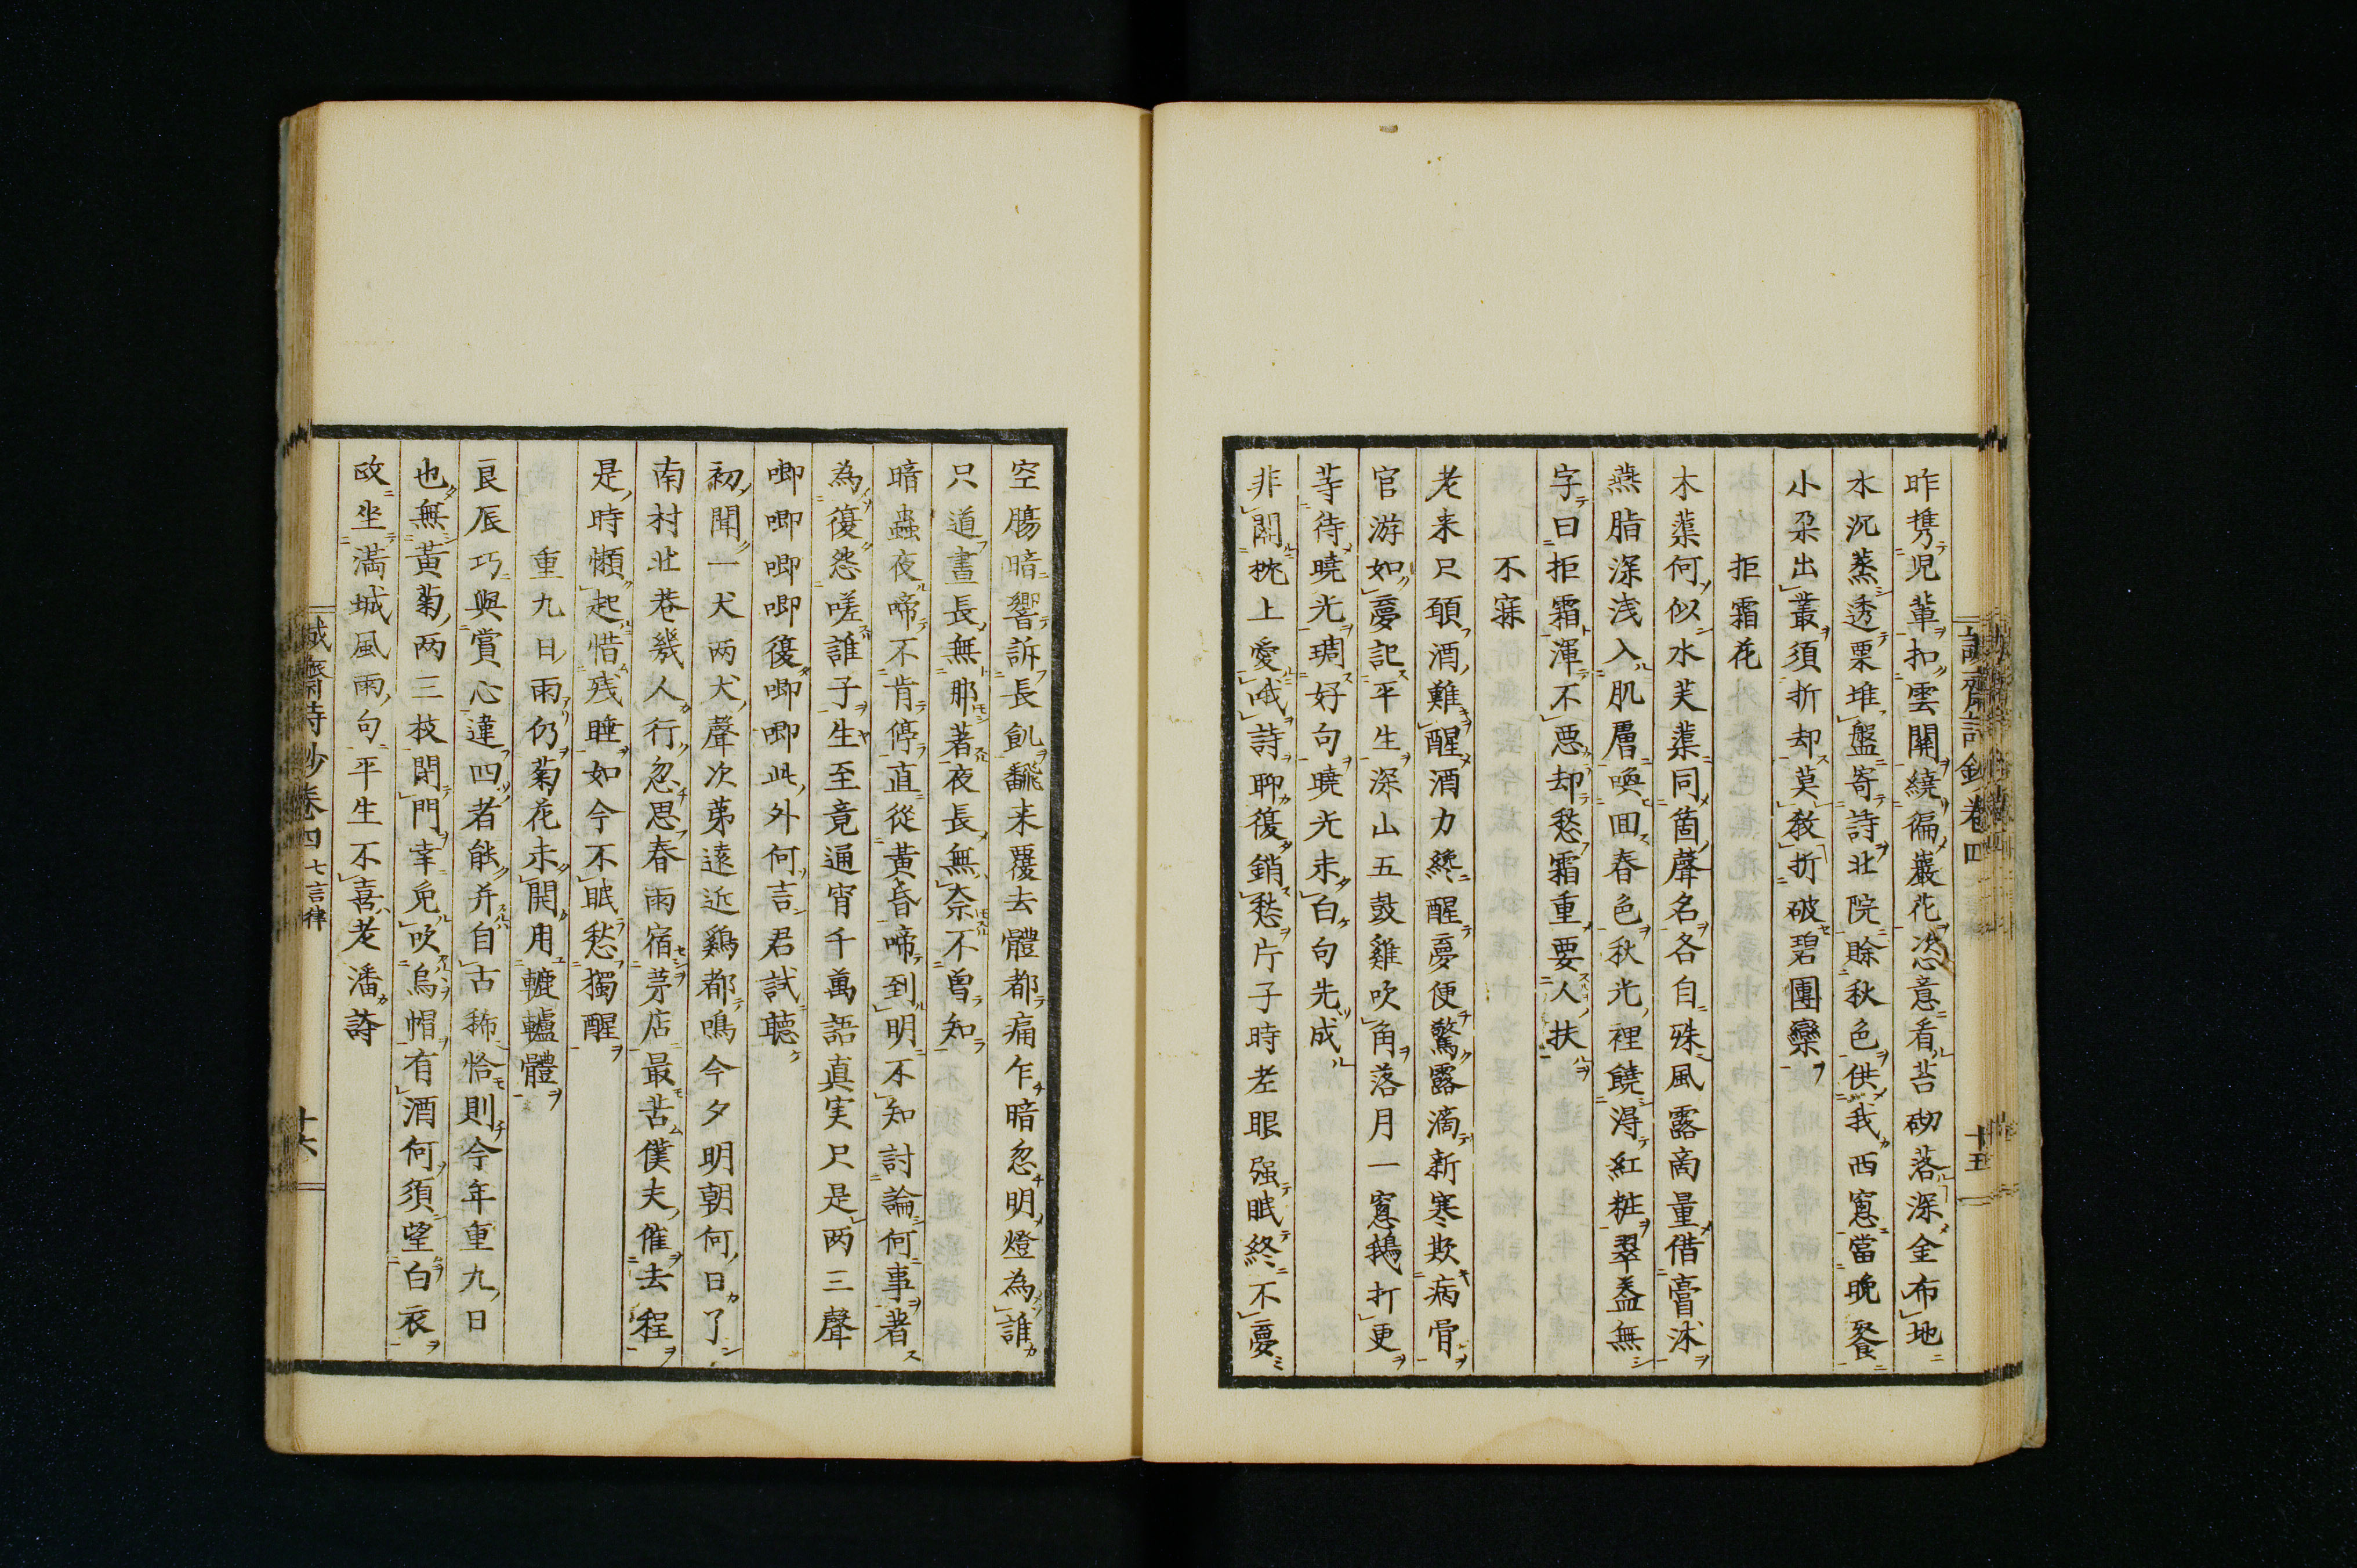 昨携児輩扣雲關繞徧巖花恣意看苔砌落深金布地
水沉蒸透栗堆盤寄詩北院賒秋色供我西窓當晩餐
小朶出叢須折却莫教折破碧團欒
拒霜花
木蕖何似水芙蕖同箇聲名各自殊風露商量借膏沐
燕脂深浅入肌膚喚回春色秋光裡饒淂紅粧翠盖無
字曰拒霜渾不悪却愁霜重要人扶
不寐
老来只願酒難醒酒力纔醒夢便驚露滴新寒欺病骨
官游如夢記平生深山五鼓雞吹角落月一窓鵝打更
䓁待曉光琱好句曉光未白句先成
非關枕上愛哦詩聊復銷愁片子時老眼强眠終不夢
空膓暗響訴長飢飜来覆去體都痛乍暗忽明燈為誰
只道晝長無那著夜長無奈不曽知
暗蟲夜啼不肯停直從黃昏啼到明不知討論何事著
為復怨嗟誰子生至竟通宵千萬語真実只是两三聲
唧唧唧唧復唧唧此外何言君試聽
初聞一犬两犬聲次苐遠近鷄都鳴今夕明朝何日了
南村北巷幾人行忽思春雨宿茅店最苦僕夫催去程
是時懶起惜残睡如今不眠愁獨醒
重九日雨仍菊花未開用轆轤體
良辰巧與賞心違四者能并自古稀恰則今年重九日
也無黃菊两三枝閉門幸免吹烏帽有酒何須望白衣
政坐満城風雨句平生不喜老潘詩
誠齋詩鈔卷四
十五
誠齋詩鈔卷四 七言律
十六